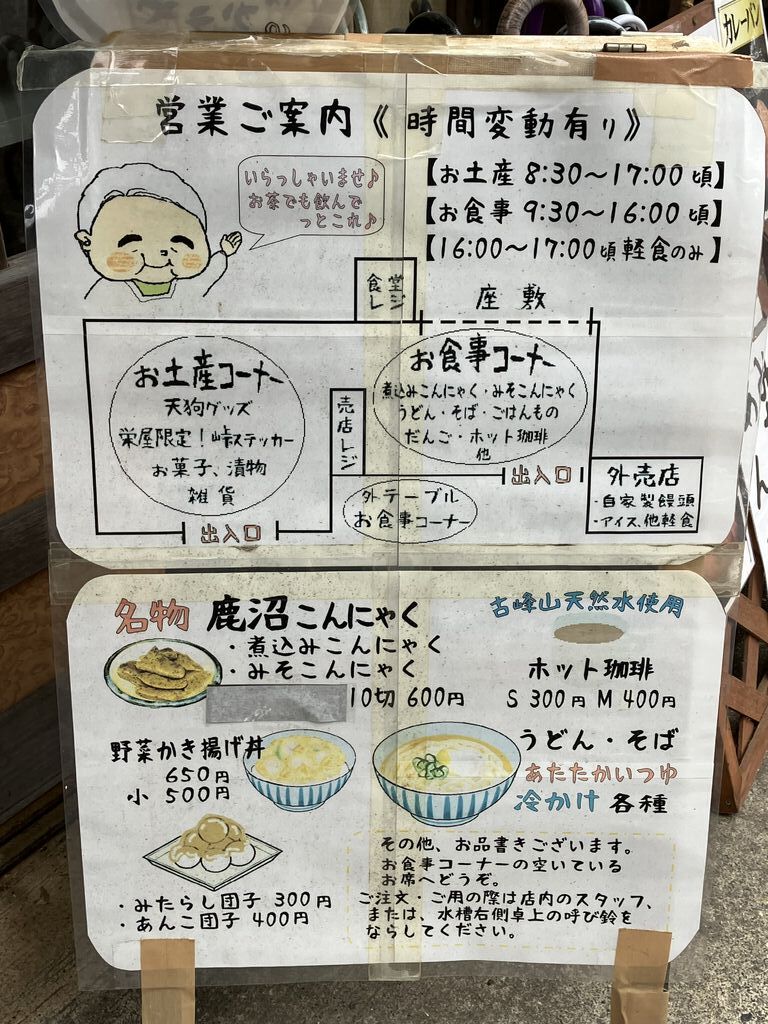 カレーパン
営業ご案内《時間変動有り》
いらっしゃいませ♪
お茶でも飲んで
っとこれ♪
【お土産 8:30～17:00頃】
【お食事 9:30～16:00頃】
【16:00～17:00頃軽食のみ】
食堂レジ
座敷
お土産コーナー
天狗グッズ
栄屋限定！峠ステッカー
お菓子、漬物
雑貨
売店レジ
お食事コーナー
煮込みこんにゃく・みそこんにゃく
うどん・そば・ごはんもの
だんご・ホット珈琲
他
出入口
外テーブル
お食事コーナー
出入口
外売店
・自家製饅頭
・アイス、他軽食
名物 鹿沼こんにゃく
・煮込みこんにゃく
・みそこんにゃく
10切 600円
古峰山天然水使用
ホット珈琲
S 300円 M 400円
野菜かき揚げ丼
650円
小 500円
うどん・そば
あたたかいつゆ
冷かけ 各種
・みたらし団子 300円
・あんこ団子 400円
その他、お品書きございます。
お食事コーナーの空いている
お席へどうぞ。
ご注文・ご用の際は店内のスタッフ、
または、水槽右側卓上の呼び鈴を
ならしてください。